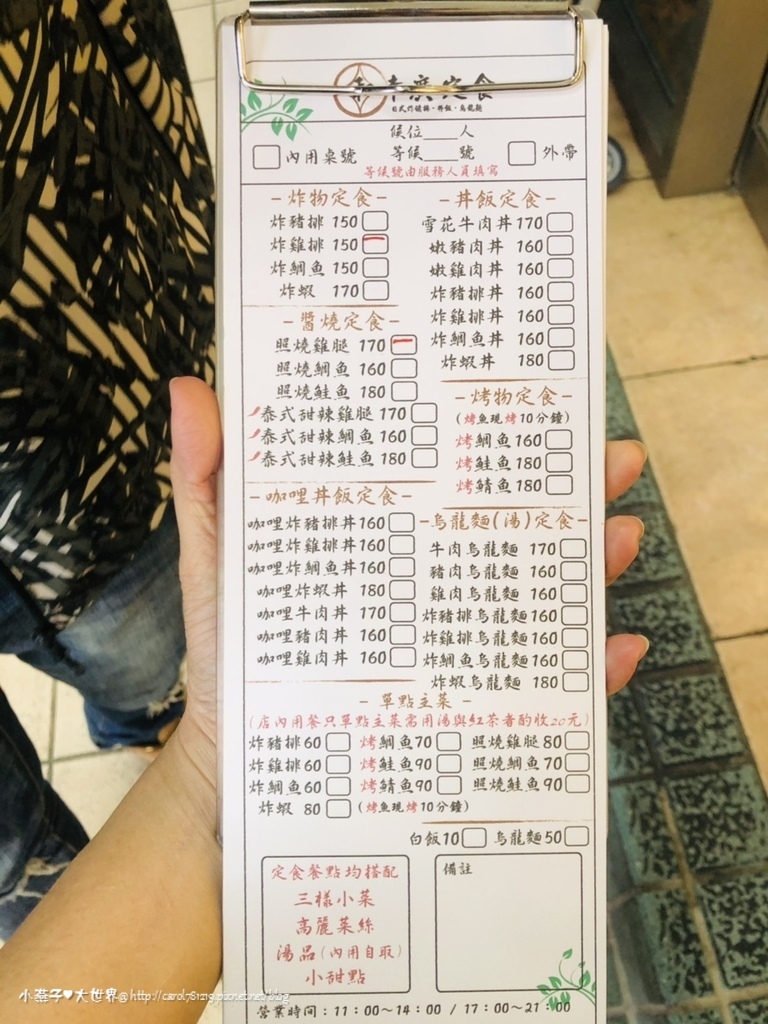 定食
日式炸豬排·丼飯·烏龍麵
候位____人
內用桌號 等候____號 外帶
等候號由服務人員填寫
-炸物定食-
炸豬排 150
炸雞排 150
炸鯛魚 150
炸蝦 170
-醬燒定食-
照燒雞腿 170
照燒鯛魚 160
照燒鮭魚 180
泰式甜辣雞腿 170
泰式甜辣鯛魚 160
泰式甜辣鮭魚 180
-咖哩丼飯定食-
咖哩炸豬排丼 160
咖哩炸雞排丼 160
咖哩炸鯛魚丼 160
咖哩炸蝦丼 180
咖哩牛肉丼 170
咖哩豬肉丼 160
咖哩雞肉丼 160
-丼飯定食-
雪花牛肉丼 170
嫩豬肉丼 160
嫩雞肉丼 160
炸豬排丼 160
炸雞排丼 160
炸鯛魚丼 160
炸蝦丼 180
-烤物定食-
(烤魚現烤10分鐘)
烤鯛魚 160
烤鮭魚 180
烤鯖魚 160
-烏龍麵(湯)定食-
牛肉烏龍麵 170
豬肉烏龍麵 160
雞肉烏龍麵 160
炸豬排烏龍麵 160
炸雞排烏龍麵 160
炸鯛魚烏龍麵 160
炸蝦烏龍麵 180
-單點主菜-
(店內用餐只單點主菜需用湯與紅茶者酌收20元)
炸豬排 60 烤鯛魚 70 照燒雞腿 80
炸雞排 60 烤鮭魚 90 照燒鯛魚 70
炸鯛魚 60 烤鯖魚 90 照燒鮭魚 90
炸蝦 80 (烤魚現烤10分鐘)
白飯 10 烏龍麵 50
定食餐點均搭配
三樣小菜
高麗菜絲
湯品(內用自取)
小甜點
備註
營業時間:11:00~14:00 / 17:00~21:00
小燕子♥大世界@http://carol76129.pixnet.net/blog